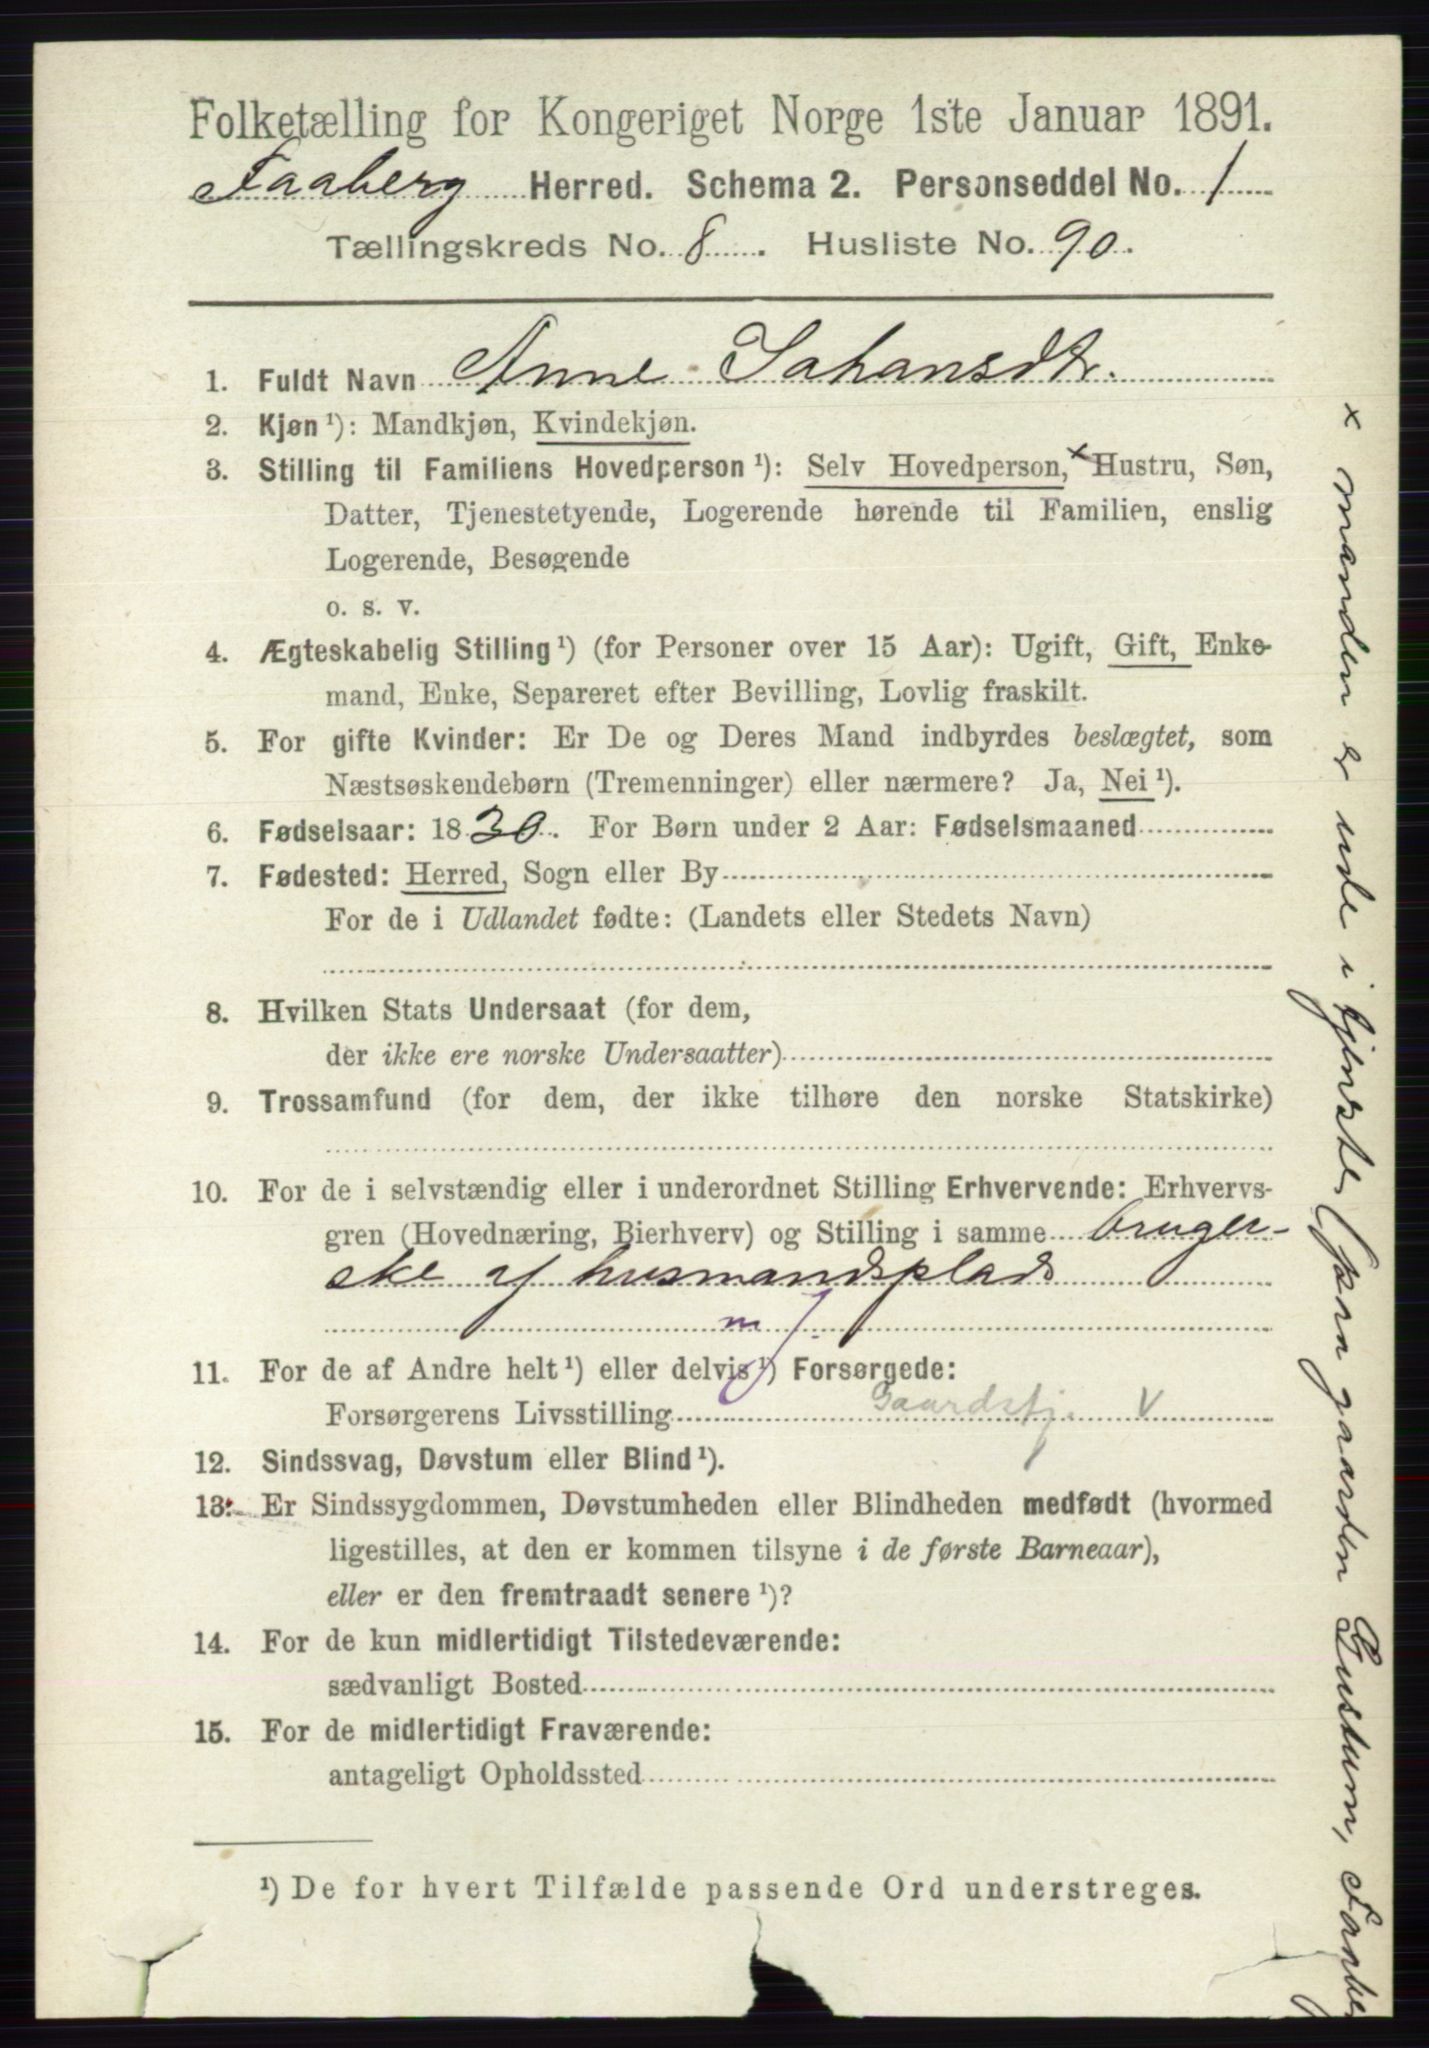 Folketælling for Kongeriget Norge 1ste Januar 1891.
Faaberg Herred. Schema 2. Personseddel No. 1
Tællingskreds No. 8. Husliste No. 90.
1. Fuldt Navn Anne Johansdtr.
2. Kjøn ¹): Mandkjøn, Kvindekjøn.
3. Stilling til Familiens Hovedperson ¹): Selv Hovedperson, x Hustru, Søn,
Datter, Tjenestetyende, Logerende hørende til Familien, enslig
Logerende, Besøgende
o. s. v.
4. Ægteskabelig Stilling ¹) (for Personer over 15 Aar): Ugift, Gift, Enke-
mand, Enke, Separeret efter Bevilling, Lovlig fraskilt.
5. For gifte Kvinder: Er De og Deres Mand indbyrdes beslægtet, som
Næstsøskendebørn (Tremenninger) eller nærmere? Ja, Nei ¹).
6. Fødselsaar: 1830. For Børn under 2 Aar: Fødselsmaaned
7. Fødested: Herred, Sogn eller By
For de i Udlandet fødte: (Landets eller Stedets Navn)
8. Hvilken Stats Undersaat (for dem,
der ikke ere norske Undersaatter)
9. Trossamfund (for dem, der ikke tilhøre den norske Statskirke)
10. For de i selvstændig eller i underordnet Stilling Erhvervende: Erhvervs-
gren (Hovednæring, Bierhverv) og Stilling i samme bruger-
ske af husmandsplads
m J.
11. For de af Andre helt ¹) eller delvis ¹) Forsørgede:
Forsørgerens Livsstilling Gaardstj. V
12. Sindssvag, Døvstum eller Blind ¹).
13. Er Sindssygdommen, Døvstumheden eller Blindheden medfødt (hvormed
ligestilles, at den er kommen tilsyne i de første Barneaar),
eller er den fremtraadt senere ¹)?
14. For de kun midlertidigt Tilstedeværende:
sædvanligt Bosted
15. For de midlertidigt Fraværende:
antageligt Opholdssted
¹) De for hvert Tilfælde passende Ord understreges.
x manden er ude i tjeneste paa gaarden Sustum, Faaberg